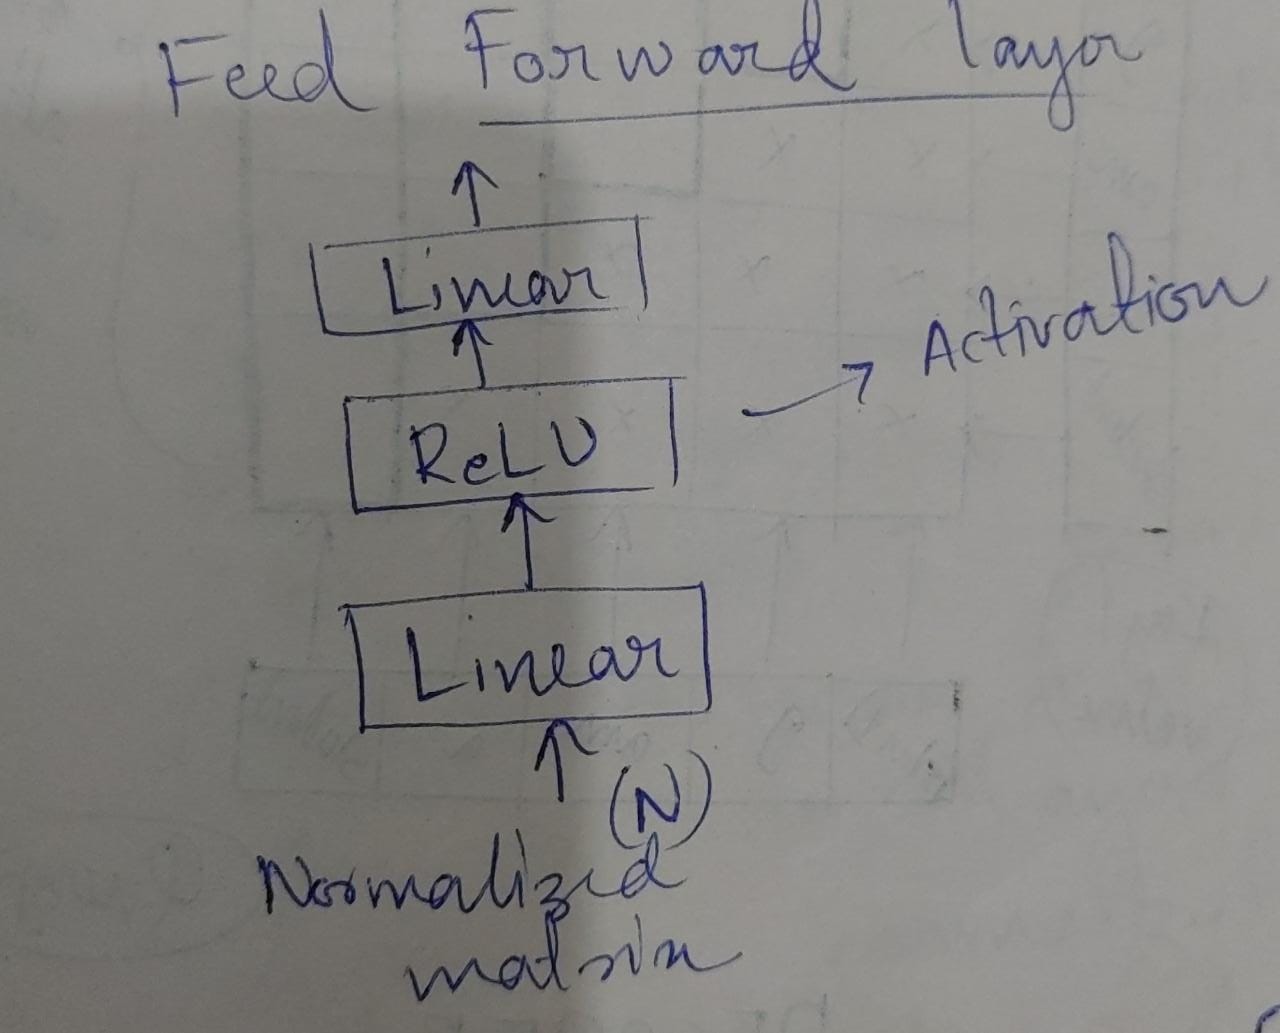 Feed Forward layer
Linear
Activation
ReLU
Linear
(N)
Normalized
matrix